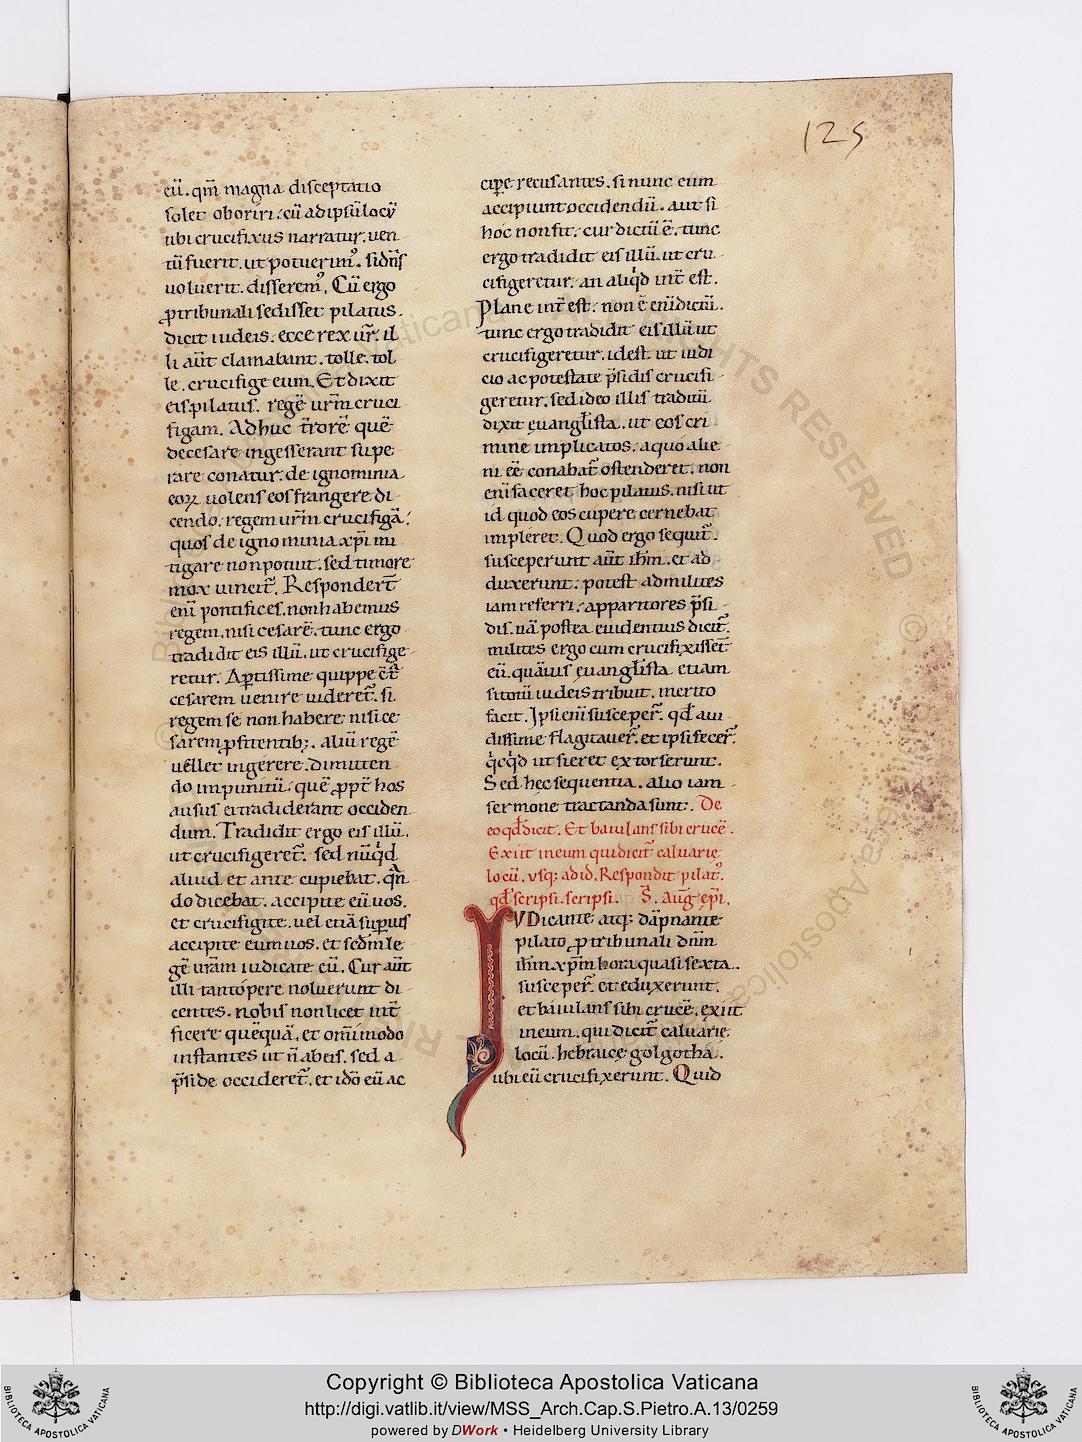 125
cū. qm̄ magna disceptatio
solet oboriri. cū adipsū locū
ubi crucifixus narratur. uen
tū fuerit. ut potuerim᾽. sidn̄s
uoluerit. disserem᾽. Cū ergo
ꝓtribunali sedisset pilatus.
dicit iudeis. ecce rex ur̄. il
li aūt clamabant. tolle. tol
le. crucifige eum. Et dixit
eis pilatus. regē urm̄ cruci
figam. Adhuc t̄rorē quē
decesare ingesserant supe
rare conatur. de ignominia
eoꝝ uolens eos frangere di
cendo. regem urm̄ crucifigā?
quos de ignominia xp̄i mi
tigare non potuit. sed timore
mox uincit᷑. Respondert̄
eni pontifices. non habemus
regem. nisi cesarē. tunc ergo
tradidit eis illū. ut crucifige
retur. Aptissime quippe
cesarem uenire uideret᷑. si
regem se non habere nisi ce
sarem ꝓfitentibꝫ. aliū regē
uellet ingerere. dimitten
do impunitū. quē ꝓpt̄ hos
ausus ei tradiderant occiden
dum. Tradidit ergo eis illū.
ut crucifigeret᷑. sed nūqd
aliud et ante cupiebat. qn̄
do dicebat. accipite eū uos.
et crucifigite. uel etiā suꝑius
accipite eum uos. et scdm̄ le
gē urām iudicate eū. Cur aūt
illi tantopere noluerunt di
centes. nobis non licet int̄
ficere quēquā. et om̄imodo
instantes ut n̄ abeis. sed a
p̄side occideret᷑. et idō eū ac
cipere recusantes. si nunc eum
accipiunt occidendū. aut si
hoc non fit. cur dictū ē. tunc
ergo tradidit eis illū. ut cru
cifigeretur. an aliqd int̄ est.
Plane int̄ est. non ē enī dictū.
tunc ergo tradidit eis illū ut
crucifigeretur. idest. ut iudi
cio ac potestate p̄sidis crucifi
geretur. sed ideo illis traditū
dixit euanglista. ut eos cri
mine implicatos. a quo alie
ni eē conabat᷑ ostenderet. non
enī faceret hoc pilatus. nisi ut
id quod eos cupere cernebat
impleret. Quod ergo sequit᷑.
susceperunt aūt ihm̄. et ad
duxerunt. potest ad milites
iam referri. apparitores p̄si
dis. nā postea euidentius dicit᷑.
milites ergo cum crucifixisset̄
eū. quāuis euanglista. etiam
si totū iudeis tribuit. merito
facit. Ipsi enī susceper̄. qd̄ aui
dissime flagitauer̄. et ipsi fecer̄.
qcqd ut fieret extorserunt.
Sed hec sequentia. alio iam
sermone tractanda sunt. De
eo qd̄ dicit. Et baiulans sibi crucē.
Exiit in eum qui dicit᷑ caluarie
locū. vsqꝫ ad id. Respondit pilat᾽.
qd̄ scripsi. scripsi. S̄. Aug̅ ep̄i.
IVDicante atqꝫ dāpnante
pilato ꝓ tribunali dnm̄
ihm̄ xpm̄ hora quasi sexta.
susceper̄. et eduxerunt.
et baiulans sibi crucē. exiit
in eum. qui dicit᷑ caluarie
locū. hebraice golgotha.
ubi eū crucifixerunt. Quid
Copyright © Biblioteca Apostolica Vaticana
http://digi.vatlib.it/view/MSS_Arch.Cap.S.Pietro.A.13/0259
powered by DWork • Heidelberg University Library
BIBLIOTECA APOSTOLICA VATICANA
BIBLIOTECA APOSTOLICA VATICANA